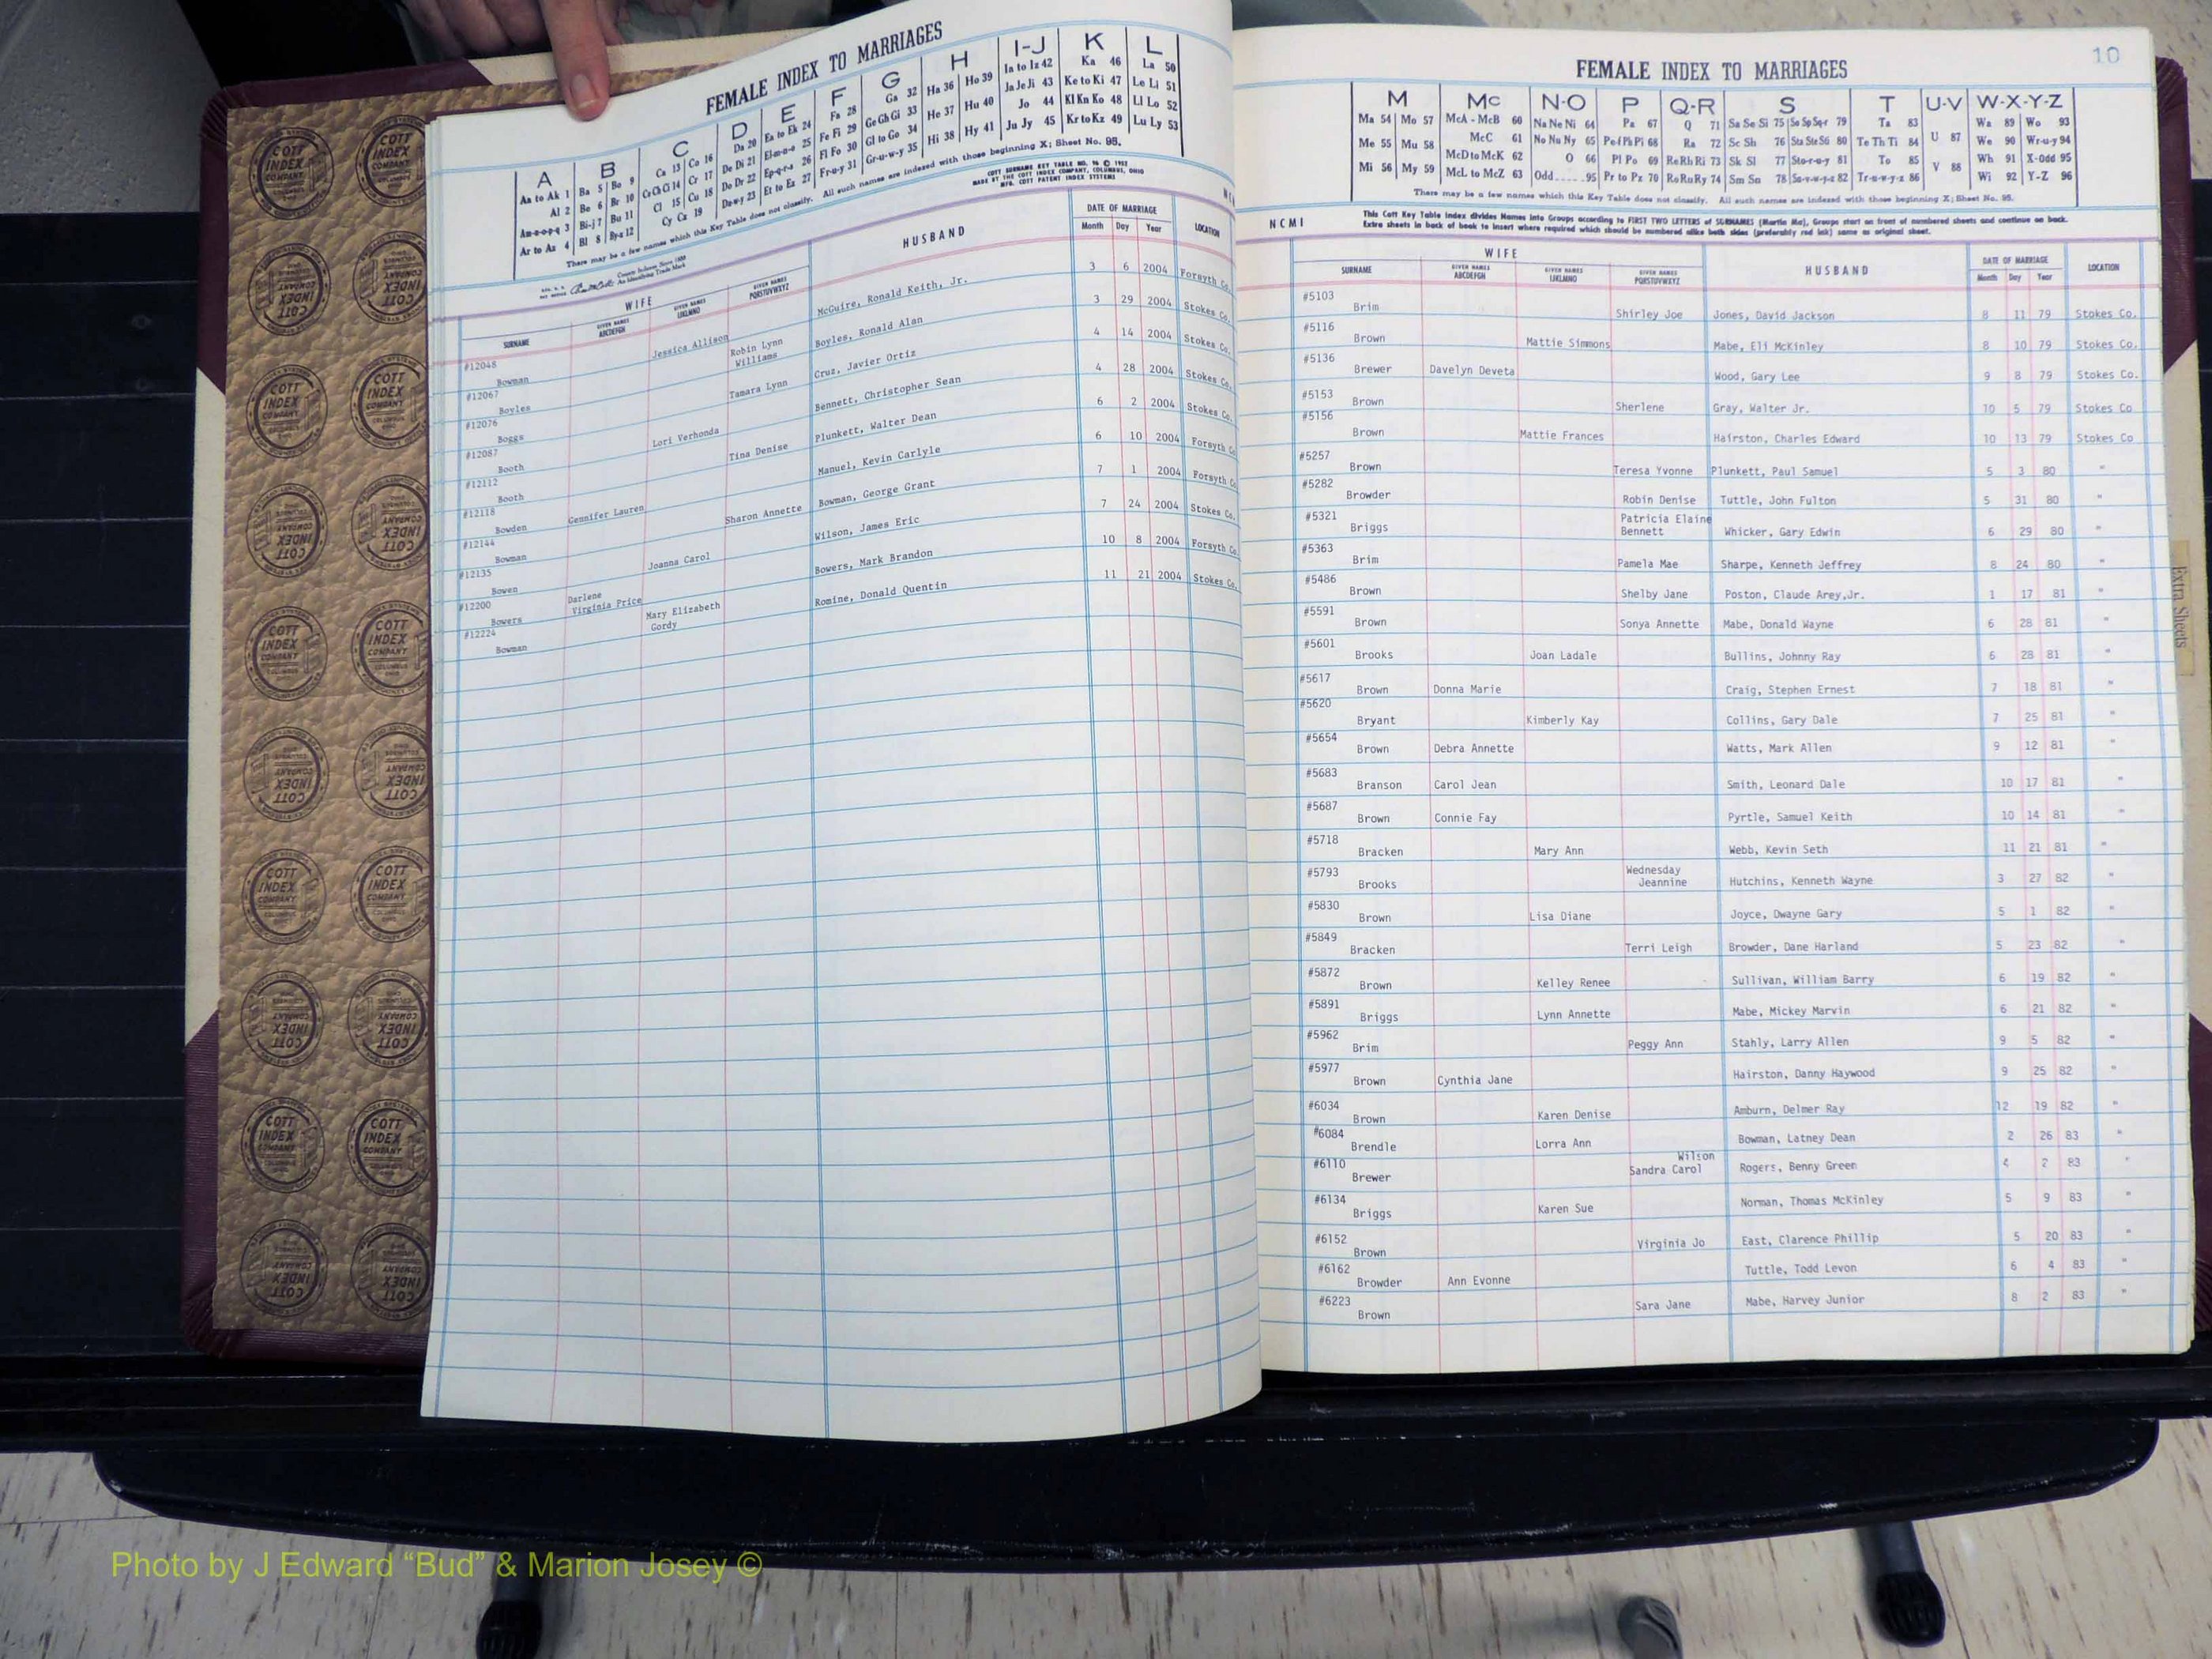 FEMALE INDEX TO MARRIAGES
A B C D E F G H I-J K L
Aa to Ak 1 Ba 5 Bo 9 Ca 13 Co 16 Da 20 Ea to Ek 24 Fa 28 Ga 32 Ha 36 Ho 39 Ia to Iz 42 Ka 46 La 50
Al 2 Be 6 Br 10 Ce Ch Ci 14 Cr 17 De Di 21 El-m-n-o 25 Fe Fi 29 Ge Gh Gi 33 He 37 Hu 40 Ja Je Ji 43 Ke to Ki 47 Le Li 51
Am-n-o-p-q 3 Bi-j 7 Bu 11 Cl 15 Cu 18 Do Dr 22 Ep-q-r-s 26 Fl Fo 30 Gl to Go 34 Hi 38 Hy 41 Jo 44 Kl Kn Ko 48 Ll Lo 52
Ar to Az 4 Bl 8 By-z 12 Cy Cz 19 Du-w-y 23 Et to Ez 27 Fr-u-y 31 Gr-u-w-y 35 Ju Jy 45 Kr to Kz 49 Lu Ly 53
There may be a few names which this Key Table does not classify. All such names are indexed with those beginning X; Sheet No. 95.
COTT SURNAME KEY TABLE NO. 96 © 1952
MADE BY THE COTT INDEX COMPANY, COLUMBUS, OHIO
MFG. COTT PATENT INDEX SYSTEMS
WIFE HUSBAND DATE OF MARRIAGE LOCATION
SURNAME GIVEN NAMES ABCDEFGH GIVEN NAMES IJKLMNO GIVEN NAMES PQRSTUVWXYZ Month Day Year
#12048
Bowman Jessica Allison McGuire, Ronald Keith, Jr. 3 6 2004 Forsyth Co.
#12067
Boyles Robin Lynn Williams Boyles, Ronald Alan 3 29 2004 Stokes Co.
#12076
Boggs Tamara Lynn Cruz, Javier Ortiz 4 14 2004 Stokes Co.
#12087
Booth Lori Verhonda Bennett, Christopher Sean 4 28 2004 Stokes Co.
#12112
Booth Tina Denise Plunkett, Walter Dean 6 2 2004 Stokes Co.
#12118
Bowden Gennifer Lauren Manuel, Kevin Carlyle 6 10 2004 Forsyth Co
#12144
Bowman Sharon Annette Bowman, George Grant 7 1 2004 Forsyth C
#12135
Bowen Joanna Carol Wilson, James Eric 7 24 2004 Stokes Co.
#12200
Bowers Darlene Virginia Price Bowers, Mark Brandon 10 8 2004 Forsyth Co
#12224
Bowman Mary Elizabeth Gordy Romine, Donald Quentin 11 21 2004 Stokes Co.
10
FEMALE INDEX TO MARRIAGES
M Mc N-O P Q-R S T U-V W-X-Y-Z
Ma 54 Mo 57 McA - McB 60 Na Ne Ni 64 Pa 67 Q 71 Sa Se Si 75 So Sp Sq-r 79 Ta 83 U 87 Wa 89 Wo 93
Me 55 Mu 58 McC 61 No Nu Ny 65 Pe-f Ph Pi 68 Ra 72 Sc Sh 76 Sta Ste Sti 80 Te Th Ti 84 V 88 We 90 Wr-u-y 94
Mi 56 My 59 McD to McK 62 O 66 Pl Po 69 Re Rh Ri 73 Sk Sl 77 Sto-r-u-y 81 To 85 Wh 91 X-Odd 95
McL to McZ 63 Odd.....95 Pr to Pz 70 Ro Ru Ry 74 Sm Sn 78 Su-v-w-y-z 82 Tr-u-w-y-z 86 Wi 92 Y-Z 96
There may be a few names which this Key Table does not classify. All such names are indexed with those beginning X; Sheet No. 95.
NCMI This Cott Key Table Index divides Names into Groups according to FIRST TWO LETTERS of SURNAMES (Martin Ma), Groups start on front of numbered sheets and continue on back.
Extra sheets in back of book to insert where required which should be numbered alike both sides (preferably red ink) same as original sheet.
WIFE HUSBAND DATE OF MARRIAGE LOCATION
SURNAME GIVEN NAMES ABCDEFGH GIVEN NAMES IJKLMNO GIVEN NAMES PQRSTUVWXYZ Month Day Year
#5103
Brim Shirley Joe Jones, David Jackson 8 11 79 Stokes Co.
#5116
Brown Mattie Simmons Mabe, Eli McKinley 8 10 79 Stokes Co.
#5136
Brewer Davelyn Deveta Wood, Gary Lee 9 8 79 Stokes Co.
#5153
Brown Sherlene Gray, Walter Jr. 10 5 79 Stokes Co
#5156
Brown Mattie Frances Hairston, Charles Edward 10 13 79 Stokes Co
#5257
Brown Teresa Yvonne Plunkett, Paul Samuel 5 3 80 "
#5282
Browder Robin Denise Tuttle, John Fulton 5 31 80 "
#5321
Briggs Patricia Elaine Bennett Whicker, Gary Edwin 6 29 80 "
#5363
Brim Pamela Mae Sharpe, Kenneth Jeffrey 8 24 80 "
#5486
Brown Shelby Jane Poston, Claude Arey,Jr. 1 17 81 "
#5591
Brown Sonya Annette Mabe, Donald Wayne 6 28 81 "
#5601
Brooks Joan Ladale Bullins, Johnny Ray 6 28 81 "
#5617
Brown Donna Marie Craig, Stephen Ernest 7 18 81 "
#5620
Bryant Kimberly Kay Collins, Gary Dale 7 25 81 "
#5654
Brown Debra Annette Watts, Mark Allen 9 12 81 "
#5683
Branson Carol Jean Smith, Leonard Dale 10 17 81 "
#5687
Brown Connie Fay Pyrtle, Samuel Keith 10 14 81 "
#5718
Bracken Mary Ann Webb, Kevin Seth 11 21 81 "
#5793
Brooks Wednesday Jeannine Hutchins, Kenneth Wayne 3 27 82 "
#5830
Brown Lisa Diane Joyce, Dwayne Gary 5 1 82 "
#5849
Bracken Terri Leigh Browder, Dane Harland 5 23 82 "
#5872
Brown Kelley Renee Sullivan, William Barry 6 19 82 "
#5891
Briggs Lynn Annette Mabe, Mickey Marvin 6 21 82 "
#5962
Brim Peggy Ann Stahly, Larry Allen 9 5 82 "
#5977
Brown Cynthia Jane Hairston, Danny Haywood 9 25 82 "
#6034
Brown Karen Denise Amburn, Delmer Ray 12 19 82 "
#6084
Brendle Lorra Ann Bowman, Latney Dean 2 26 83 "
#6110
Brewer Sandra Carol Wilson Rogers, Benny Green 4 2 83 "
#6134
Briggs Karen Sue Norman, Thomas McKinley 5 9 83 "
#6152
Brown Virginia Jo East, Clarence Phillip 5 20 83 "
#6162
Browder Ann Evonne Tuttle, Todd Levon 6 4 83 "
#6223
Brown Sara Jane Mabe, Harvey Junior 8 2 83 "
Extra Sheets
COTT INDEX COMPANY
Photo by J Edward “Bud” & Marion Josey ©